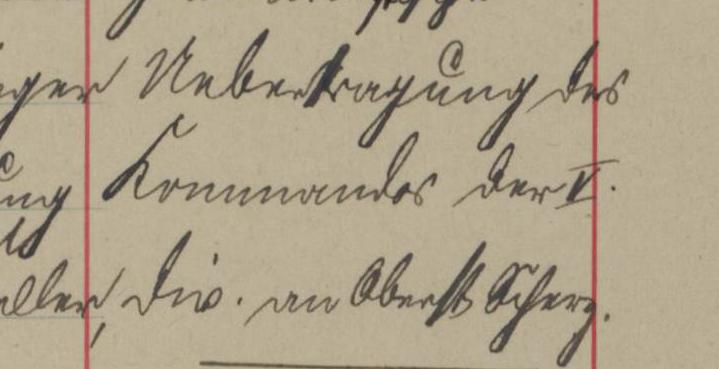 ger Uebertragung des
ung Kommandos der V.
aller, Div. an Oberst Scherz.